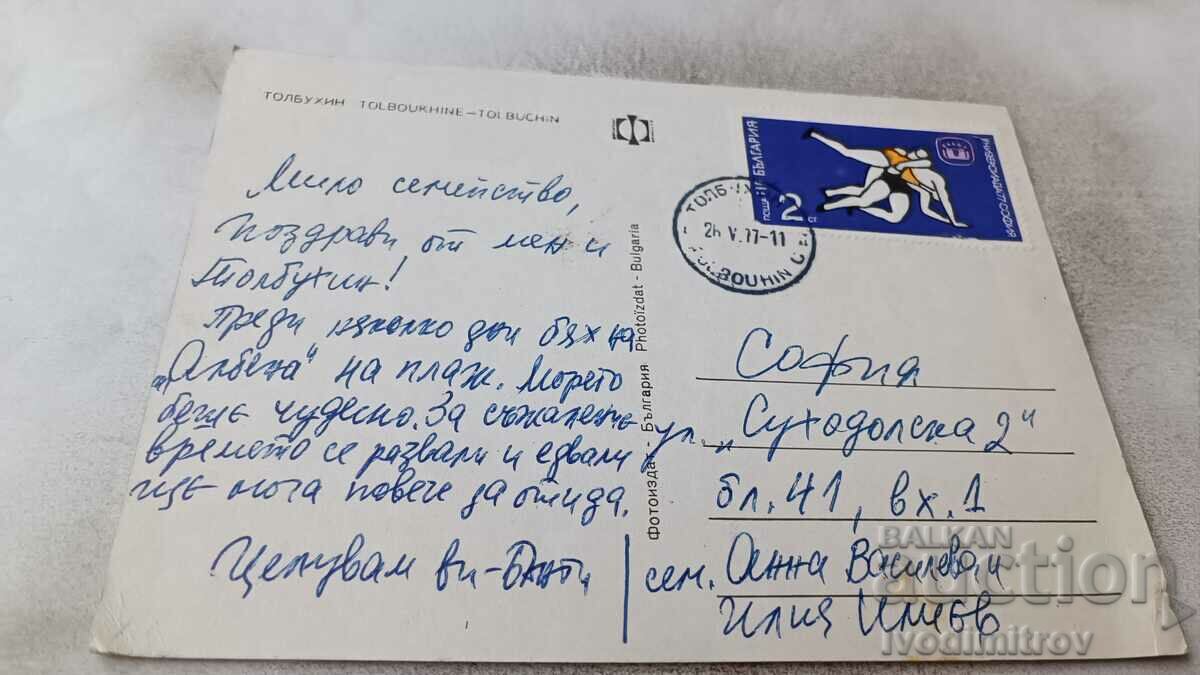 ТОЛБУХИН TOLBOUKHINE – TOLBUCHIN
Мило семейство,
Поздрави от мен и
Толбухин!
Преди няколко дни бях на
„Албена“ на плаж. Морето
беше чудесно. За съжаление
времето се развали и едвали
ще мога повече да отида.
Целувам ви –
Фотоиздат - България Photoizdat - Bulgaria
ПОЩА БЪЛГАРИЯ
2 СТ
УНИВЕРСИАДА'77 СОФИЯ
ТОЛБУХИН
26.V.77-11
TOLBOUHIN
София
ул. „Суходолска 2“
бл. 41, вх. 1
сем. Анна Василева и
Илия Илиев
BALKAN
auction
ivodimitrov